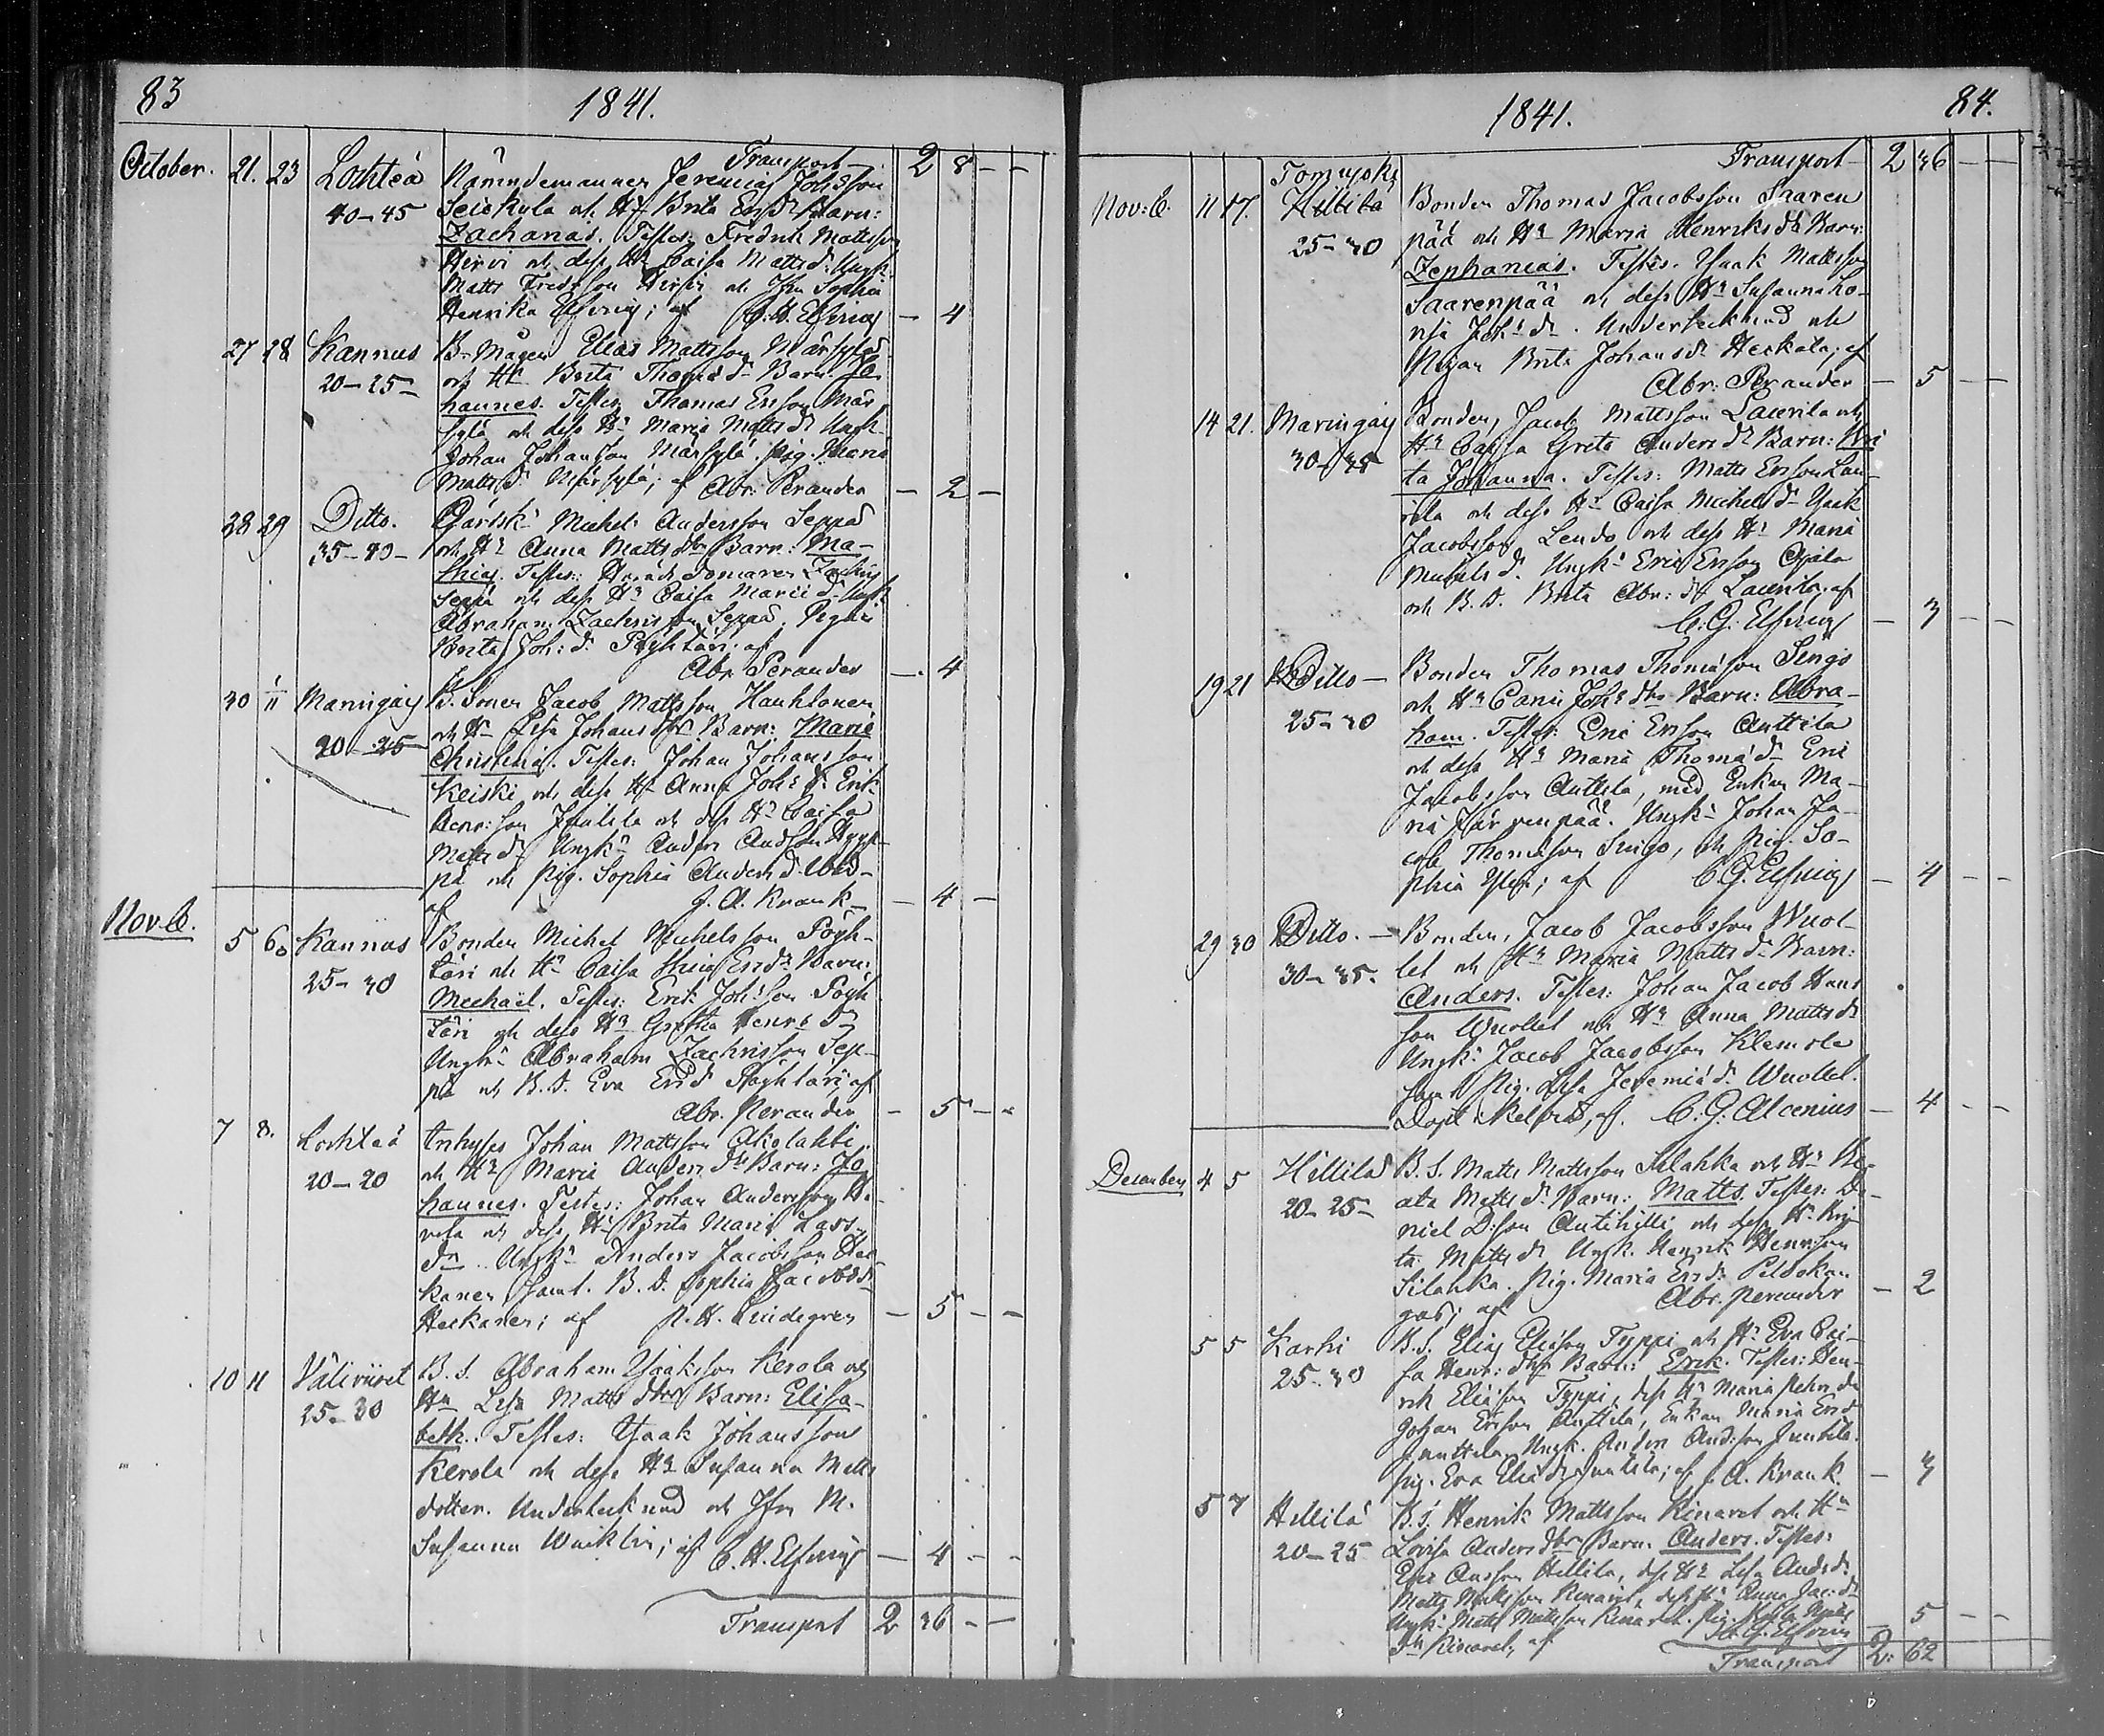 83
1841.
Transport 2 8 - -
October. 21. 23 Lochteå Nämndemannen Jeremias Johsson
40-45 och Hu Brita Ersdr Barn:
Zacharias. Testes: Fredrik Mattsson
Hirvi och dess Hu Caisa Mattsdr Ungk.
Matts Fredrsson Hirvi och Jfru Sophia
Henrika Elfving; af C. H. Elfving - 4
27 28 Kannus B. Mågen Elias Mattsson Märsylä
20-25 och Hu Brita Thomædr Barn: Jo
hannes. Testes: Thomas Ersson Mär
sylä och dess Hu Maria Mattsdr Ungk.
Johan Johansson Märsylä. Pig. Maria
Mattsdr Märsylä; af Abr: Perander - 2 -
28 29 Ditto. Michel Andersson Seppä
35-40 och Hu Anna Mattsdtr Barn: Ma-
thias. Testes:
Seppä och dess Hu Caisa
Abraham Zachrisson Seppä. Pigan
Brita Joh: dr Pöyhtäri; af
Abr Perander - 4
30 1/11 Maringais B. Sonen Jacob Mattsson Hauhtonen
20-25 och Hu Lisa Johansdtr Barn: Maria
Christina. Testes: Johan Johansson
Keiski och dess Hu Anna Johsdr Erik
Henr:son Junttila och dess Hu Caisa
Mattsdr Ungk: Anders Andsson
på och Pig. Sophia Andersdr
af J. A. Krank - 4 -
Nov.b. 5 6 Kannus Bonden Michel Michelsson Pöyh-
25-30 täri och Hu Caisa Ersdr Barn:
Michaël. Testes: Erik Johsson Pöyh
täri och dess Hu Gretha Henrsdr
Ungk: Abraham Zachrisson Sep-
pä och B. D. Eva Ersdr Pöyhtäri; af
Abr. Perander - 5 - -
7 8. Lochteå Inhyses Johan Mattsson Akolahti
20-20 och Hu Maria Andersdtr Barn: Jo
hannes. Testes: Johan Andersson
och dess Hu Brita Maria Lass-
dr. Ungk: Anders Jacobsson Hei
kanen samt B. D. Sophia Jacobsdr
Heikanen; af P. H. Lindegren - 5 - -
10 11 Väliviiret B. S. Abraham Isaaksson Kerola och
25-30 Hu Lisa Mattsdtr Barn: Elisa-
beth. Testes: Isaak Johansson
Kerola och dess Hu Susanna Matts
dotter. Undertecknad och Jfru M.
Susanna Wäcklin; af C. H. Elfving - 4 - -
Transport 2 36 - -
84.
1841.
Transport 2 36 - -
Nov:b. 11 17. Tomujoki
Hillilä Bonden Thomas Jacobsson Saaren
25-30 pää och Hu Maria Henriksdr Barn:
Zephanias. Testes: Isaak Mattsson
Saarenpää och dess Hu Susanna Lo-
visa Johsdr. Undertecknad och
Pigan Brita Johansdr Heckala; af
Abr: Perander - 5 - -
14 21. Maringais Bonden, Jacob Mattsson Laurila och
30-35 Hu Caisa Greta Andersdr Barn: Bri
ta Johanna. Testes: Matts Ersson Lau
rila och dess Hu Caisa Michelsdr Isaak
Jacobsson Lendo och dess Hu Maria
Michelsdr. Ungk: Eric Ersson Ojala
och B. D. Brita Abr: dr Laurila; af
C. G. Elfving - 3 - -
19 21 Ditto - Bonden Thomas Thomasson Sengo
25-30 och Hu Carin Johsdtr Barn: Abra-
ham. Testes: Eric Ersson Anttila
och dess Hu Maria Thomædr Eric
Jacobsson Anttila, med Enkan Ma-
ria Järvenpää. Ungk: Johan Ja-
cob Thomasson Sengo, och Pig. So-
phia; af C. G. Elfving - 4 - -
29 30 Ditto. - Bonden, Jacob Jacobsson Wuol-
30-35. let och Hu Maria Mattsdr Barn:
Anders. Testes: Johan Jacob Hans
son Wuollet och Hu Anna Mattsdr
Ungk: Jacob Jacobsson Klemola
samt Pig. Lisa Jeremiædr Wuollet.
Döpt i Kelviå, af C. G. Alcenius - 4 - -
December 4 5 Hillilä B. S. Matts Mattsson Silahka och Hu Be-
20-25 ata Mattsdr Barn: Matts. Testes: Da-
niel D:son Anttihilli och dess Hu Bri-
ta Mattsdr Ungk. Henrik Henrsson
Silahka. Pig. Maria Ersdr Peldokan
gas; af Abr. Perander - 2
5 5 Karhi B. S. Elias Eliasson Typpi och Hu Eva Cai-
25-30 sa Henr: dtr Barn: Erik. Testes: Hen-
rik Eliasson Typpi, dess Hu Maria dr
Johan Ersson Anttila, Enkan Maria Ersdr
Junttila, Ungk. Anders And:son Junttila.
Pig. Eva Eliædr Junttila; af J. A. Krank - 3
5 7 Hillilä B. S. Henrik Mattsson Kinaret och Hu
20-25 Lovisa Andersdtr Barn: Anders. Testes:
Eric Ansson Hillilä, dess Hu Lisa Andsdr
Matts Mattsson Kinaret, dess Hu Anna Jac:dr
Ungk: Matts Mattsson Kinaret. Pig.
dtr Kinaret; af C. G. Elfving 5 - -
Transport 2. 62